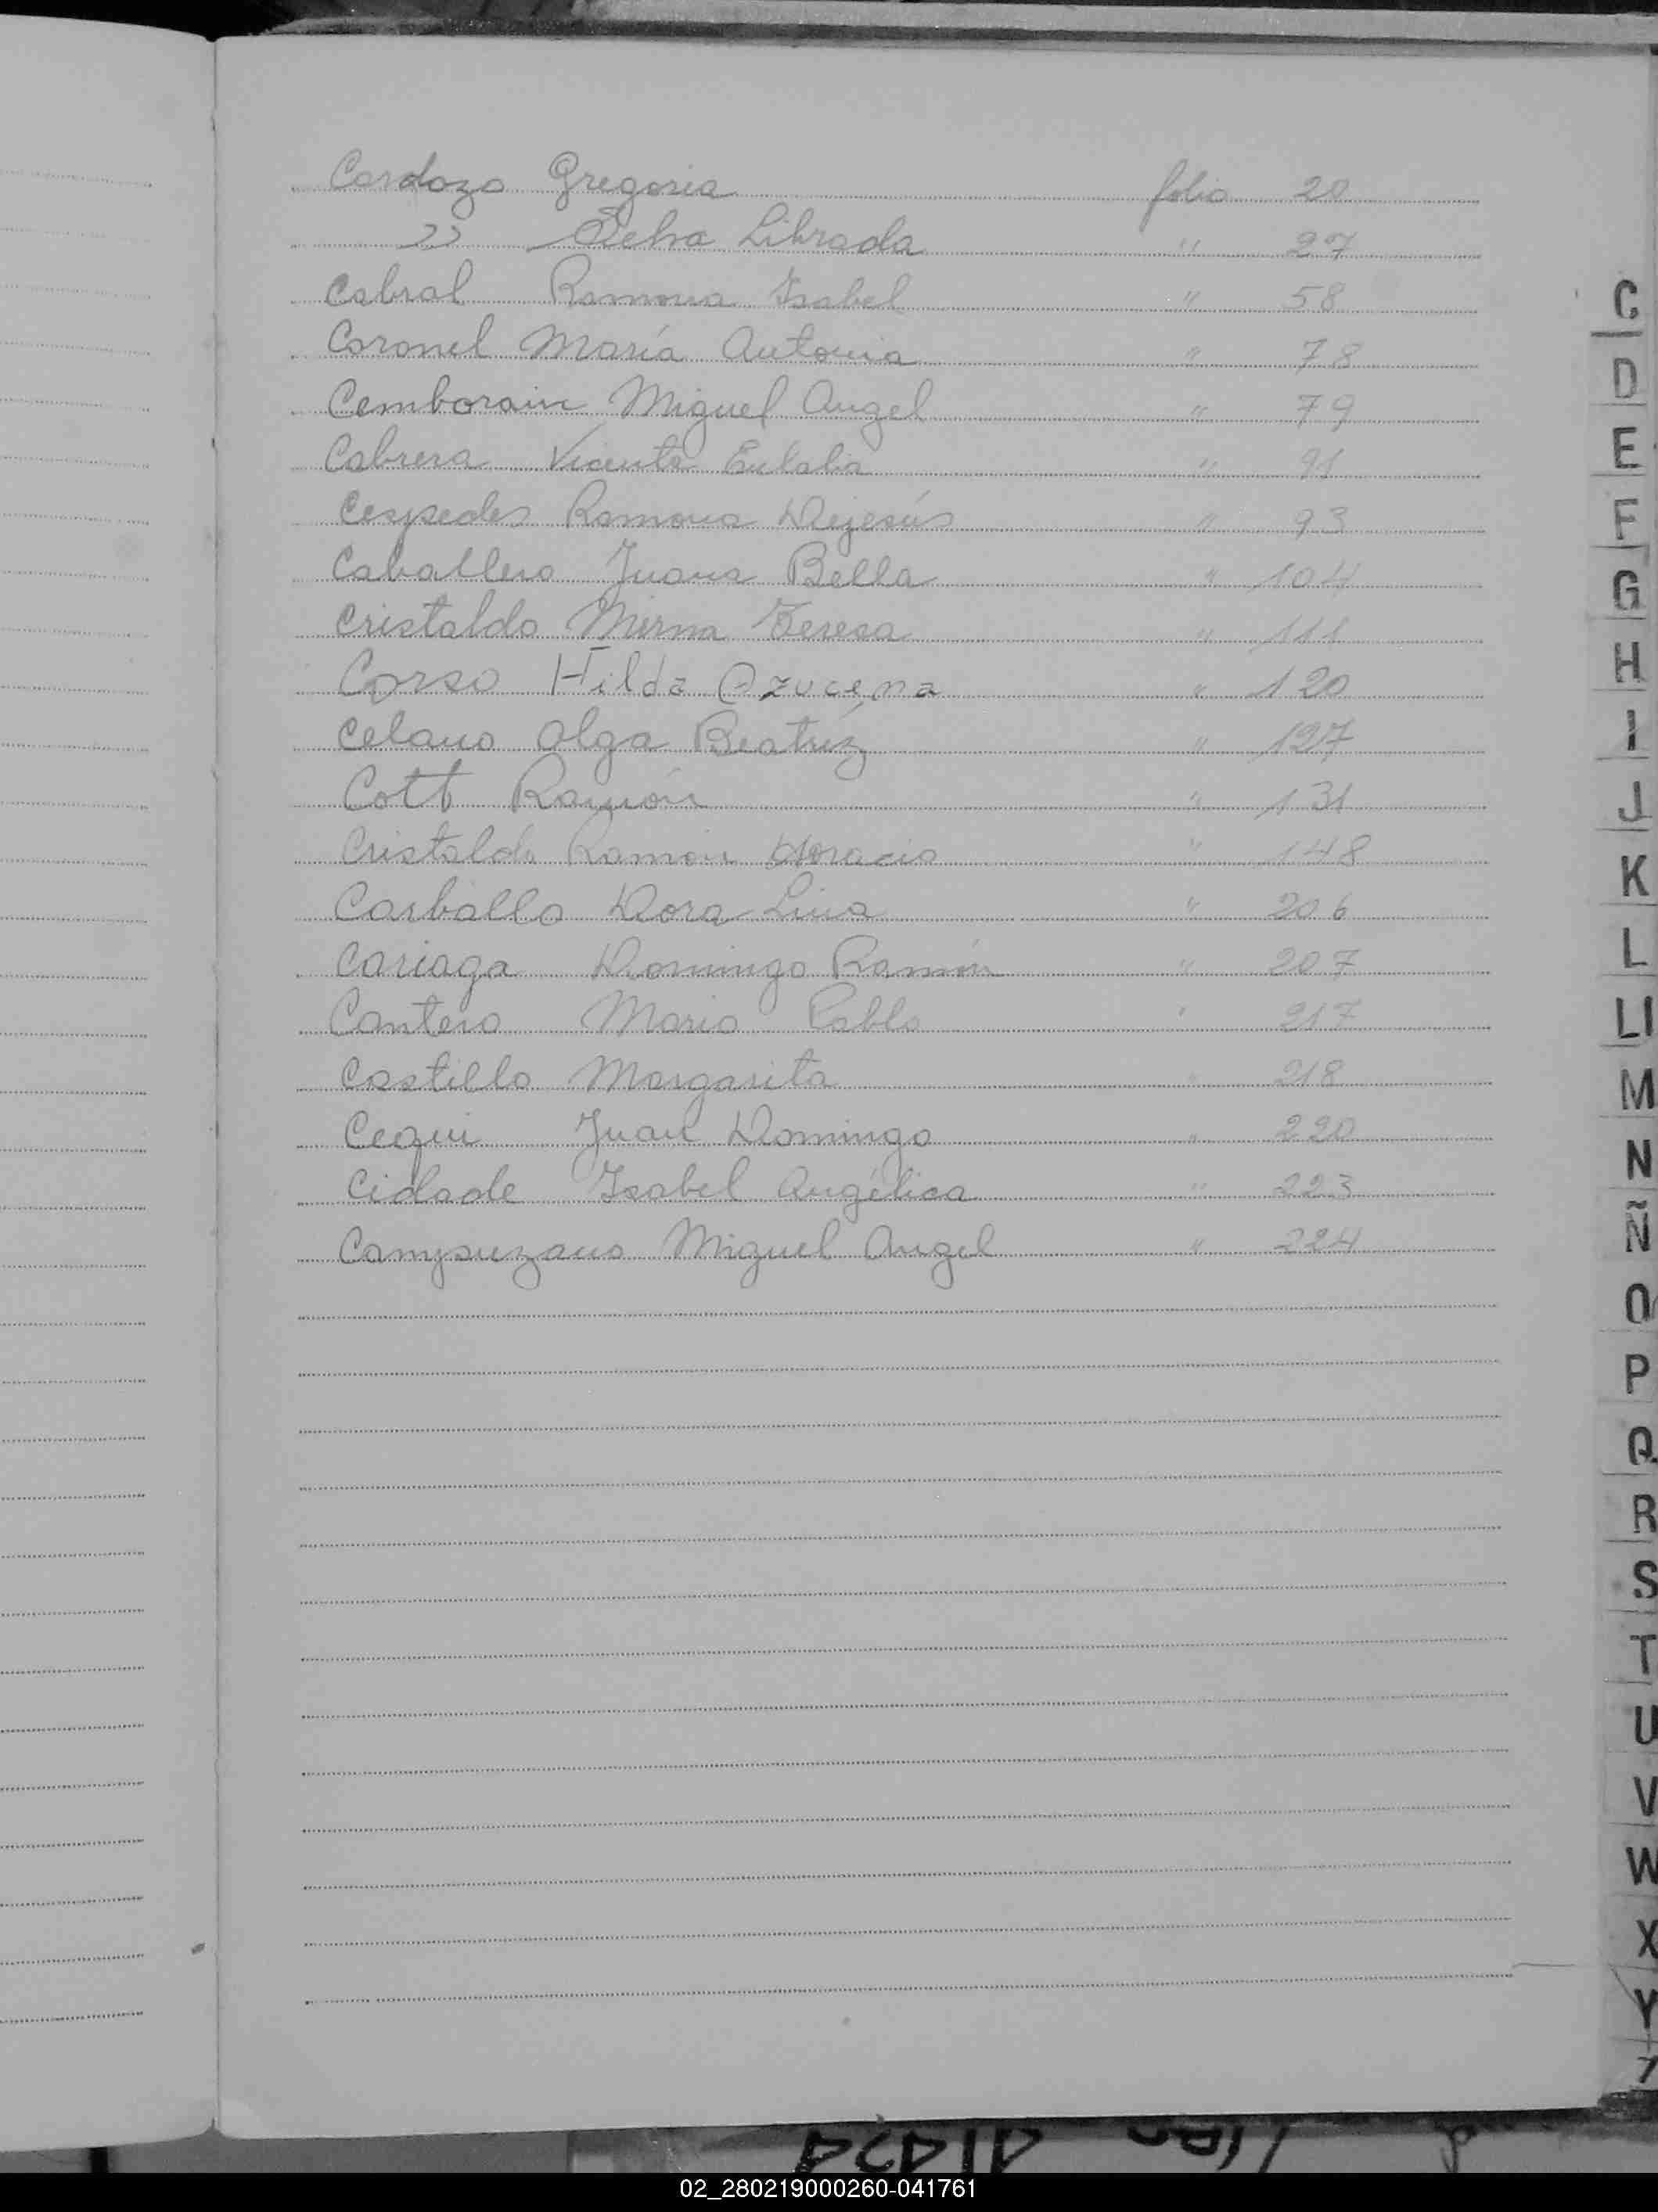 Cardozo Gregoria folio 20
" Selva Librada " 27
Cabral Ramona Isabel " 58
Coronel María Antonia " 78
Cemborain Miguel Angel " 79
Cabrera Vicenta Eulalia " 91
Cespedes Ramona Dejesús " 93
Caballero Juana Bella " 104
Cristaldo Mirna Teresa " 111
Corso Hilda Azucena " 120
Celano Olga Beatríz " 127
Cott Ramón " 131
Cristaldo Ramon Horacio " 148
Carballo Dora Lina " 206
Cariaga Domingo Ramón " 207
Cantero Mario Pablo " 217
Castillo Margarita " 218
Cequi Juan Domingo " 220
Cidade Isabel Angélica " 223
Campuzano Miguel Angel " 224
C
D
E
F
G
H
I
J
K
L
Ll
M
N
Ñ
O
P
Q
R
S
T
U
V
W
X
Y
Z
02_280219000260-041761